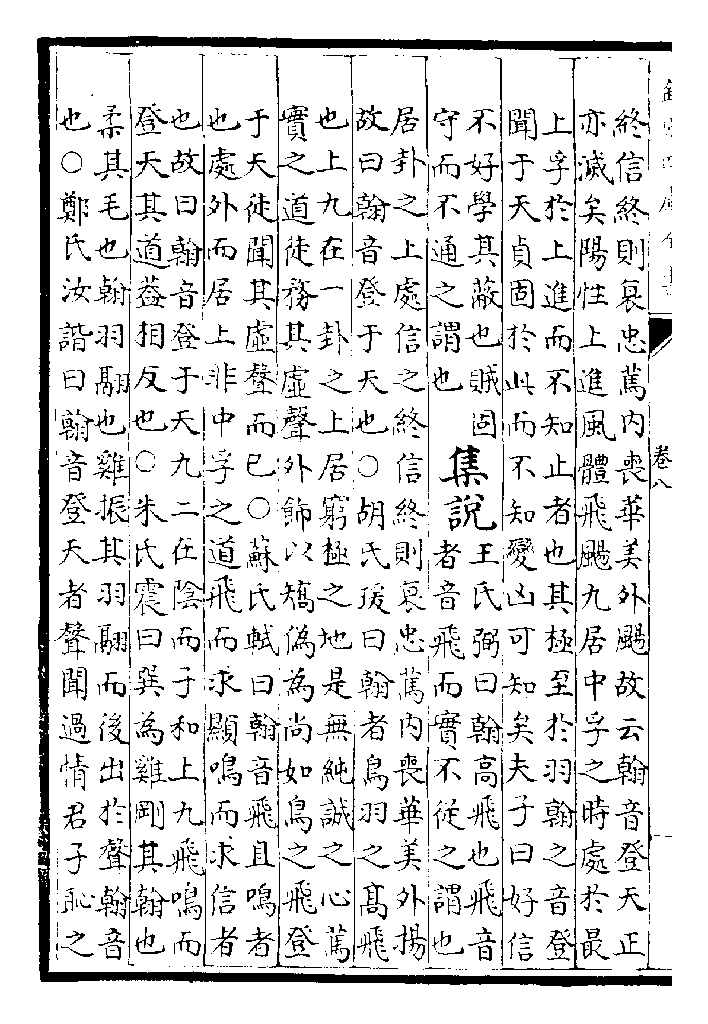 卷八
終信終則衰忠篤内喪華美外颺故云翰音登天正
亦滅矣陽性上進風體飛颺九居中孚之時處於最
上孚於上進而不知止者也其極至於羽翰之音登
聞于天貞固於此而不知變凶可知矣夫子曰好信
不好學其蔽也賊固
守而不通之謂也
集說
王氏弼曰翰高飛也飛音
者音飛而實不從之謂也
居卦之上處信之終信終則衰忠篤内喪華美外揚
故曰翰音登于天也○胡氏瑗曰翰者鳥羽之髙飛
也上九在一卦之上居窮極之地是無純誠之心篤
實之道徒務其虛聲外飾以矯偽為尚如鳥之飛登
于天徒聞其虛聲而已○蘇氏軾曰翰音飛且鳴者
也處外而居上非中孚之道飛而求顯鳴而求信者
也故曰翰音登于天九二在陰而子和上九飛鳴而
登天其道葢相反也○朱氏震曰巽為雞剛其翰也
柔其毛也翰羽翮也雞振其羽翮而後出於聲翰音
也○鄭氏汝諧曰翰音登天者聲聞過情君子恥之